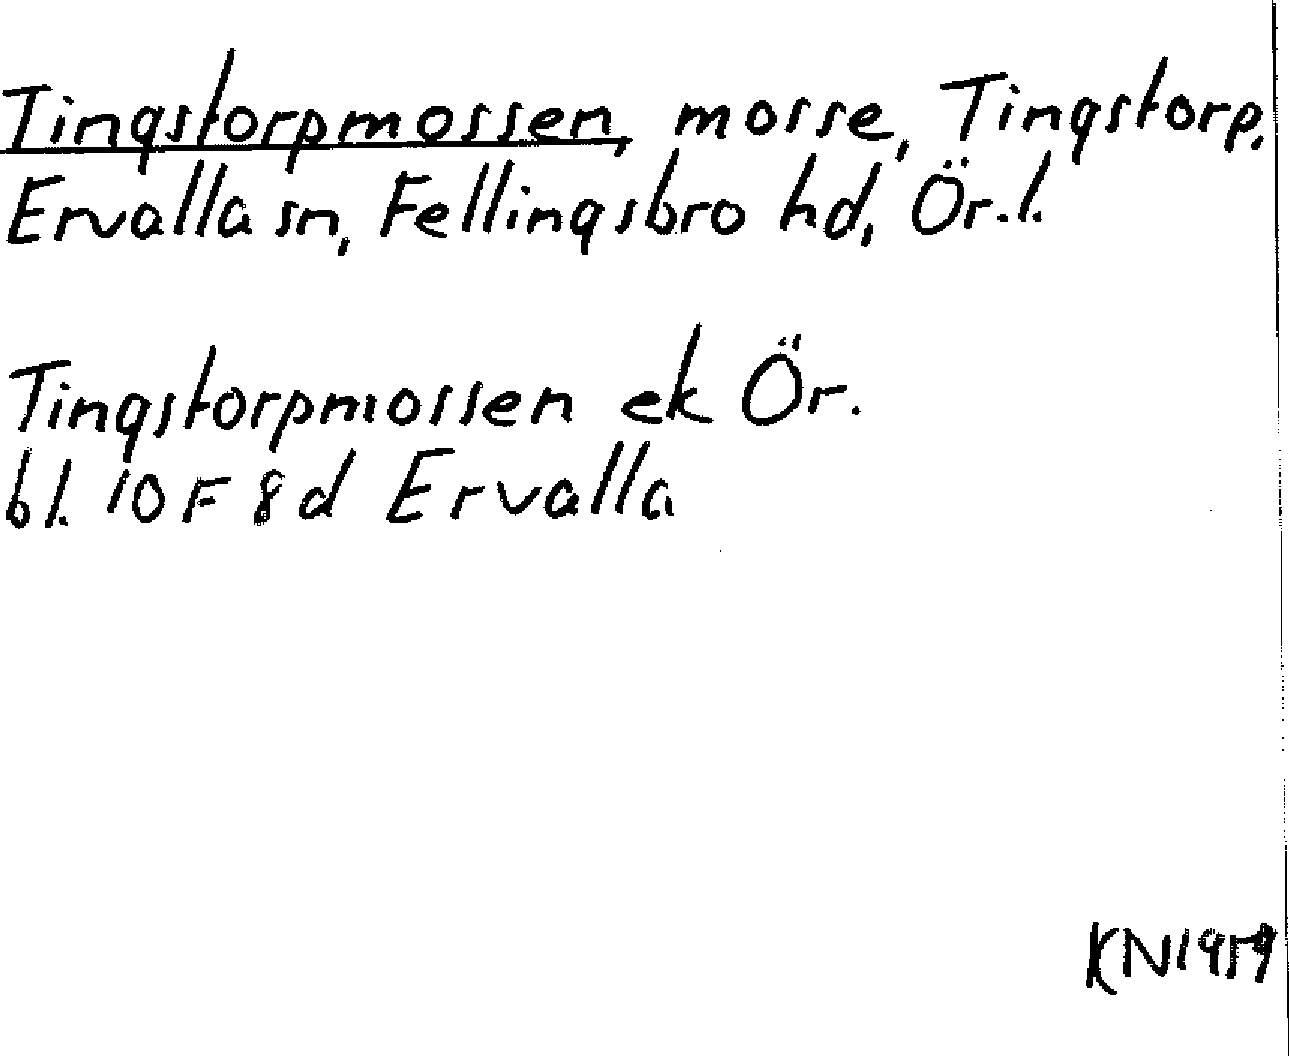 Tingstorpmossen, mosse, Tingstorp,
Ervalla sn, Fellingsbro hd, Ör. l.
Tingstorpmossen ek Ör.
bl. 10 F 8d Ervalla
KN